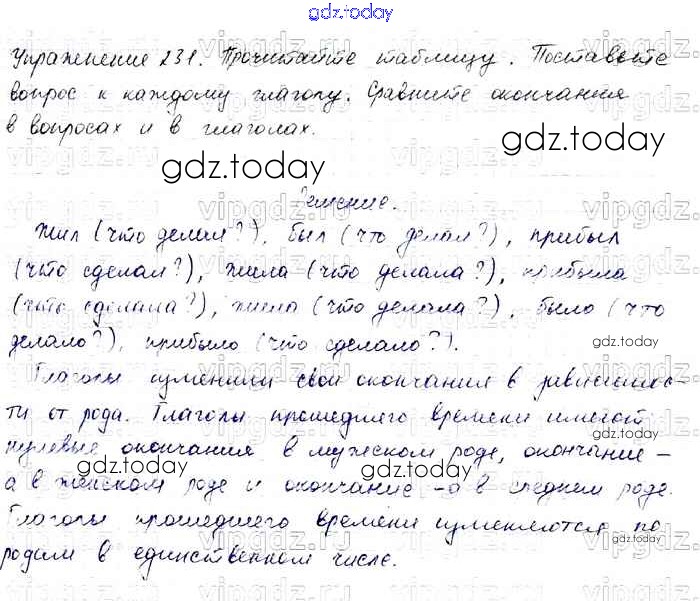 gdz.today
Упражнение 231. Прочитайте таблицу. Поставьте
вопрос к каждому глаголу. Сравните окончания
в вопросах и в глаголах.
gdz.today
gdz.today
Решение.
Жил (что делал?), был (что делал?), прибыл
(что сделал?), жила (что делала?), прибыла
(что сделала?), жила (что делала?), было (что
делало?), прибыло (что сделало?).
gdz.today
Глаголы изменили свои окончания в зависимос-
ти от рода. Глаголы прошедшего времени имеют
нулевые окончания в мужском роде, окончание -
gdz.today
а в женском роде и окончание -о в среднем роде.
gdz.today
gdz.today
Глаголы прошедшего времени изменяются по
родам в единственном числе.